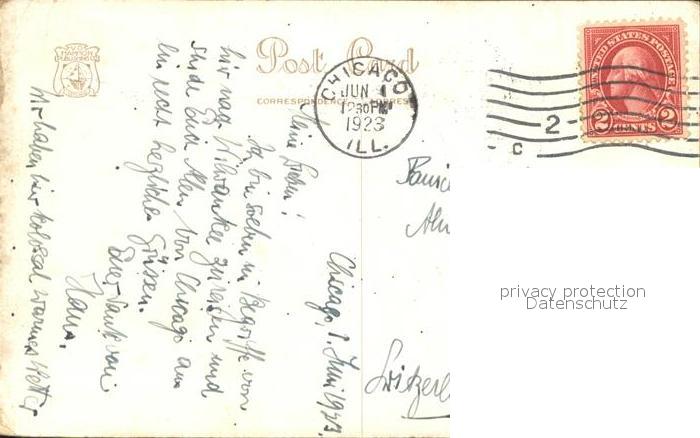 Post Card
CORRESPONDENCE
CHICAGO
JUN 1
12 30 PM
1923
ILL.
UNITED STATES POSTAGE
2 CENTS 2
2
C
Chicago, 1. Juni 1923.
Meine Lieben!
Ich bin soeben im Begriffe von
hier nach Milwaukee zu reisen und
sende Euch Allen von Chicago aus
ein recht herzliche Grüsse.
Euer
Hans.
Wir haben hier kolossal warmes Wetter
Switzerl
privacy protection
Datenschutz